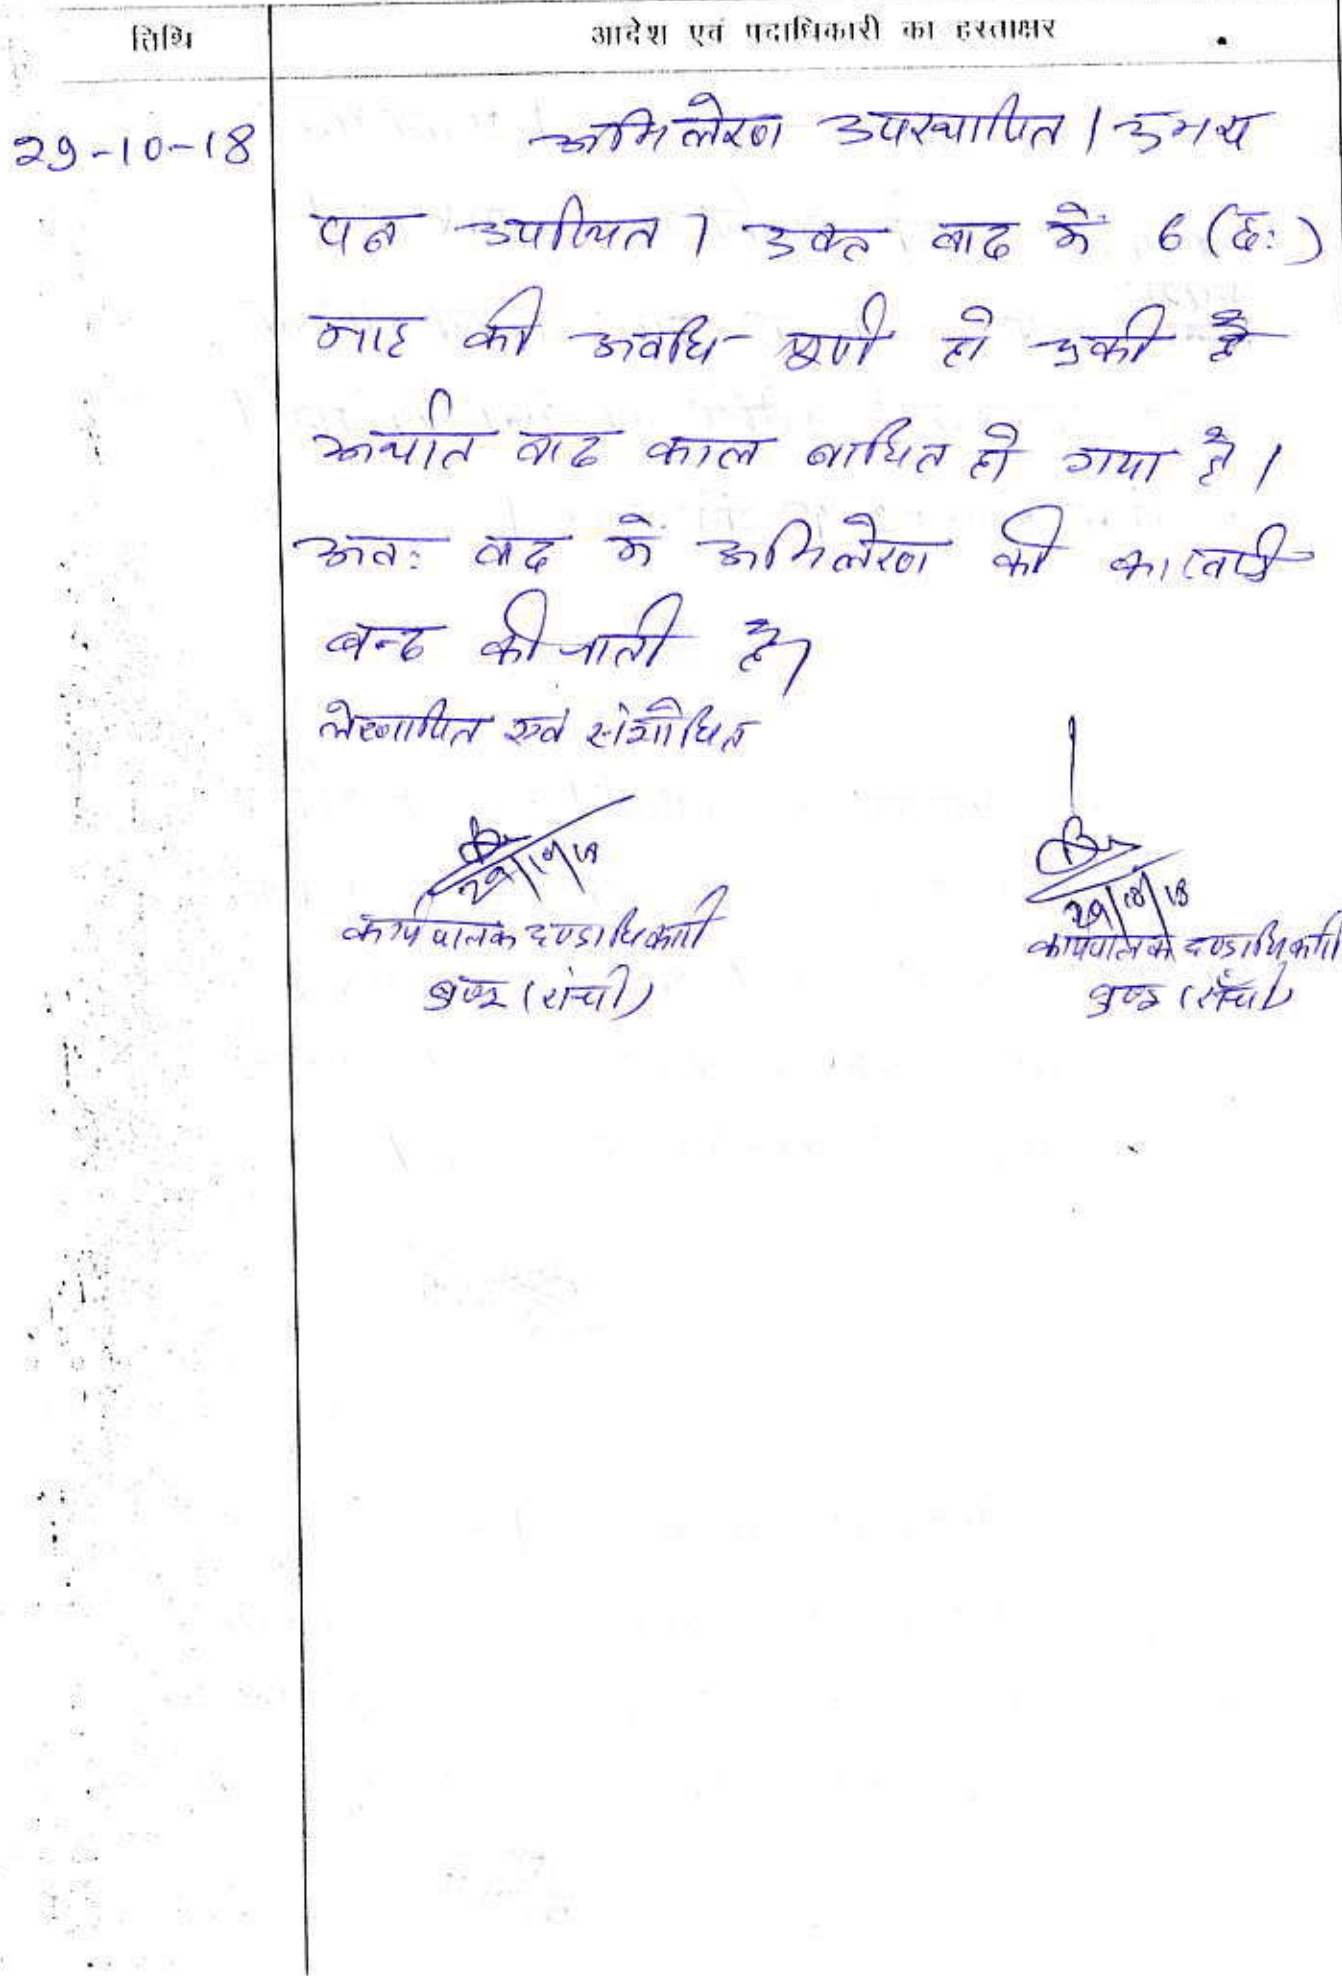 तिथि
आदेश एवं पदाधिकारी का हस्ताक्षर
29-10-18
अभिलेख उपस्थापित। उभय
पक्ष उपस्थित। उक्त वाद में 6 (छः)
माह की अवधि पूर्ण हो चुकी है
अर्थात वाद काल बाधित हो गया है।
अतः वाद में अभिलेख की कार्रवाई
बन्द की जाती है।
लेखापित एवं संशोधित
29/10/18
29/10/18
कार्यपालक दण्डाधिकारी
कार्यपालक दण्डाधिकारी
बुण्डू (रांची)
बुण्डू (राँची)